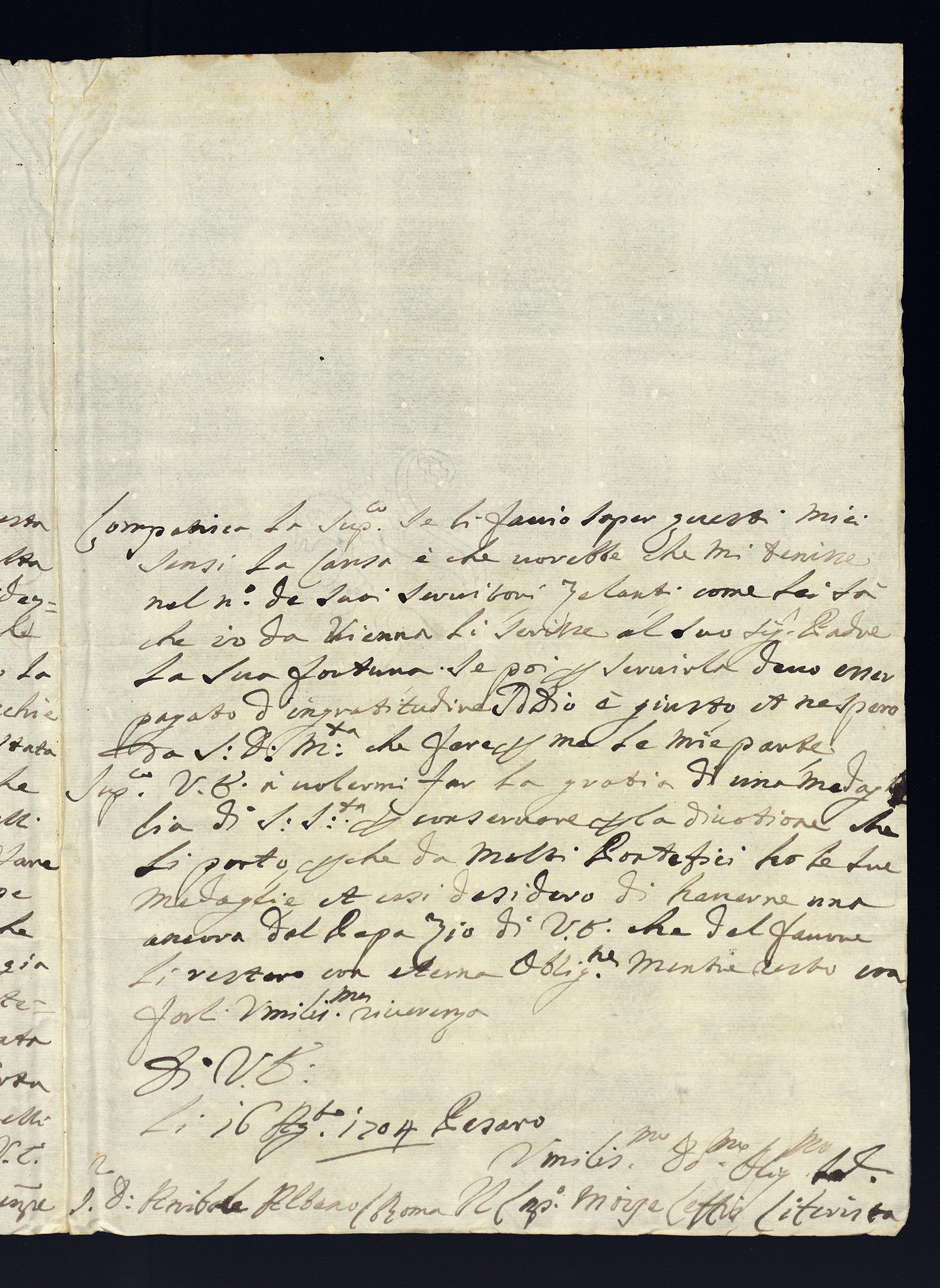 Compatisca la Sup.co se li facio saper questi miei
sensi la causa è che vorebbe che mi tenisse
nel n.o de suoi servitori Zelanti come lei sà
che io da Vienna li scrisse al suo Sig.r Padre
la sua fortuna. se poi p servirla devo esser
pagato d'ingratitudine Iddio è giusto et ne spero
da S: D: M.tà che fare p me le mie parte
Sup.co V. E. à volermi far la gratia di una medag
lia di S: S.tà p conservare p la divotione che
li porto p che da molti Pontefici ho le sue
medaglie et cosi desidero di haverne una
ancora del Papa Zio di V. E. che del favore
li restero con eterna Oblig.ne mentre resto con
far l. Umilis.ma riverenza
Di V. E:
li 16 1704 Pesaro
Umilis.mo D.mo Oblig.mo
S. D: Anibale Albano Roma Il Cap.o Moise
esta
elta
dez=
he
o la
chie
stata
he
fare
se
he
gia
te=
ata
elli
V. E.